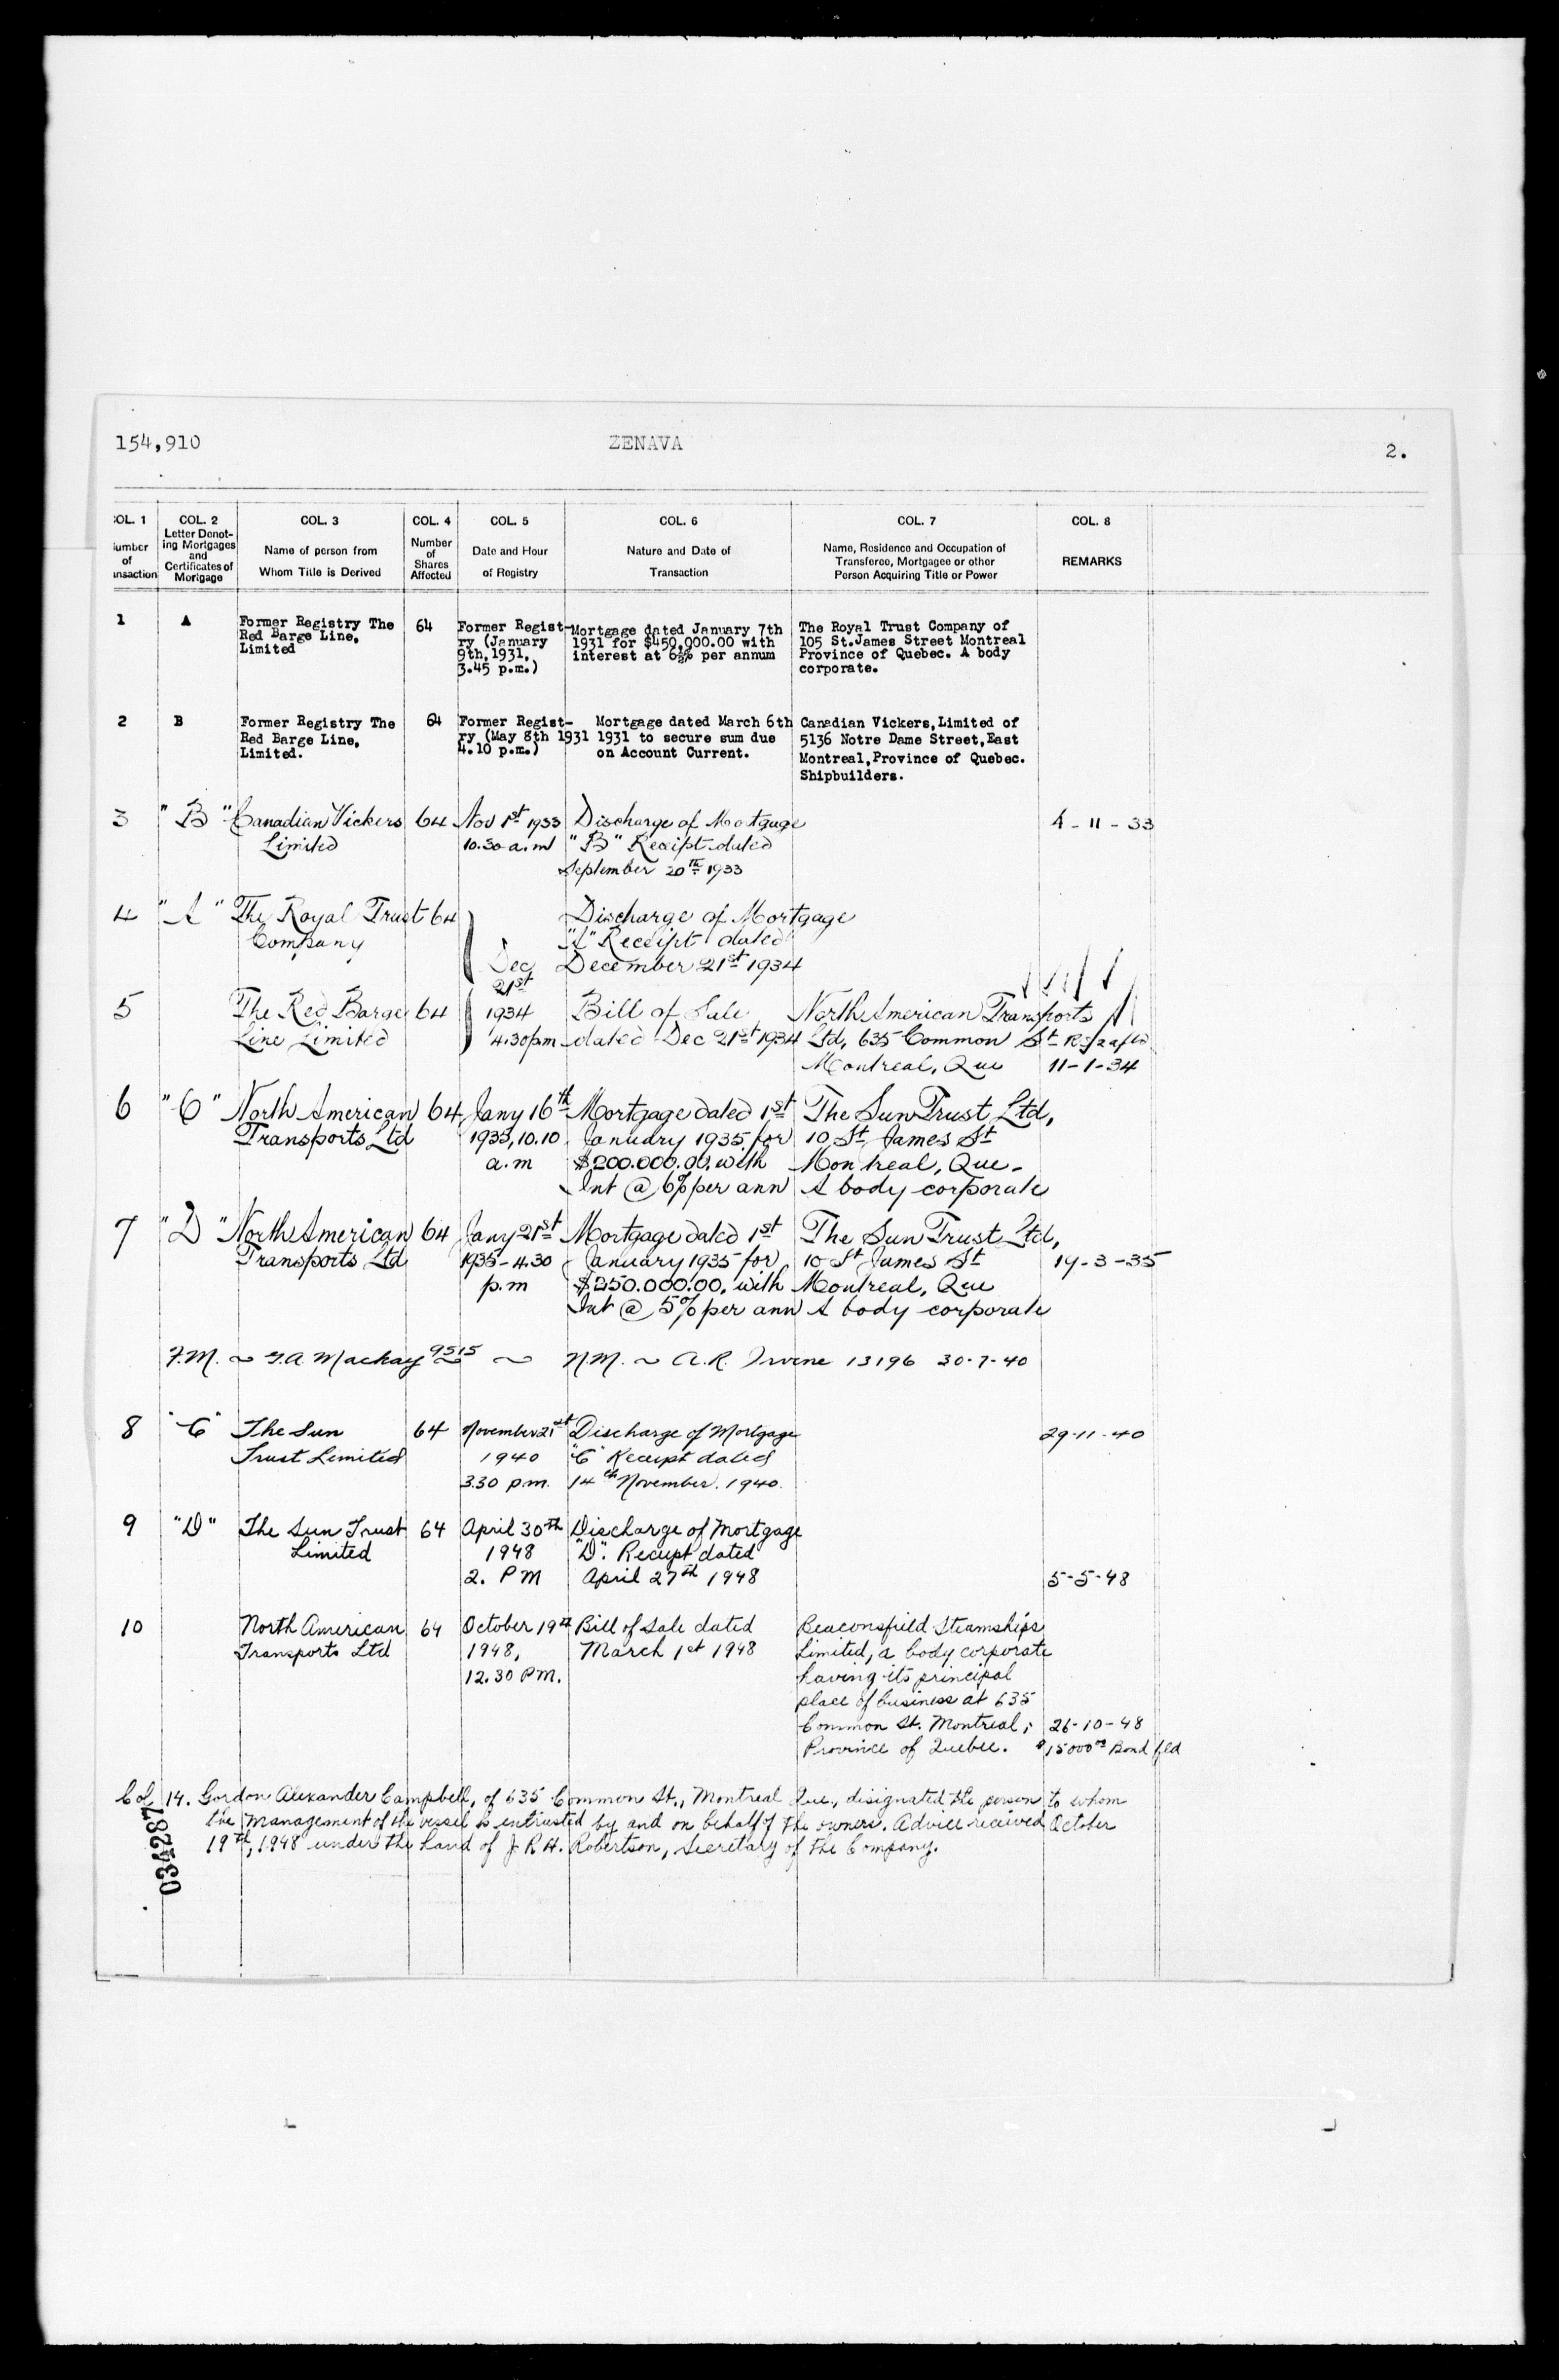 154,910 ZENAVA 2.
COL. 1 COL. 2 COL. 3 COL. 4 COL. 5 COL. 6 COL. 7 COL. 8
Number of Transaction
Letter Denoting Mortgages and Certificates of Mortgage
Name of person from Whom Title is Derived
Number of Shares Affected
Date and Hour of Registry
Nature and Date of Transaction
Name, Residence and Occupation of Transferee, Mortgagee or other Person Acquiring Title or Power
REMARKS
1 A Former Registry The 64 Former Regist- Mortgage dated January 7th The Royal Trust Company of
Red Barge Line, ry (January 1931 for $450,000.00 with 105 St.James Street Montreal
Limited 9th,1931, interest at 6½% per annum Province of Quebec. A body
3.45 p.m.) corporate.
2 B Former Registry The 64 Former Regist- Mortgage dated March 6th Canadian Vickers,Limited of
Red Barge Line, ry (May 8th 1931 1931 to secure sum due 5136 Notre Dame Street,East
Limited. 4.10 p.m.) on Account Current. Montreal,Province of Quebec.
Shipbuilders.
3 "B" Canadian Vickers 64 Nov 1st 1933 Discharge of Mortgage 4-11-33
Limited 10.30 a.m "B" Receipt dated
September 20th 1933
4 "A" The Royal Trust 64 Discharge of Mortgage
Company "A" Receipt dated
Dec December 21st 1934
21st
5 The Red Barge 64 1934 Bill of Sale North American Transports
Line Limited 4.30pm dated Dec 21st 1934 Ltd, 635 Common St
Montreal, Que 11-1-34
6 "C" North American 64 Jany 16th Mortgage dated 1st The Sun Trust Ltd,
Transports Ltd 1935, 10.10 January 1935 for 10 St James St
a.m $200.000.00. with Montreal, Que-
Int @ 6% per ann A body corporate
7 "D" North American 64 Jany 21st Mortgage dated 1st The Sun Trust Ltd,
Transports Ltd 1935-4.30 January 1935 for 10 St James St 19-3-35
p.m $250.000.00. with Montreal, Que
Int @ 5% per ann A body corporate
F.M. ~ G.A. Mackay 9515 ~ N.M. ~ A.R. Irvine 13196 30-7-40
8 "C" The Sun 64 November 21st Discharge of Mortgage 29-11-40
Trust Limited 1940 "C" Receipt dated
3.30 p.m. 14th November. 1940.
9 "D" The Sun Trust 64 April 30th Discharge of Mortgage
Limited 1948 "D". Receipt dated
2. PM April 27th 1948 5-5-48
10 North American 64 October 19th Bill of Sale dated Beaconsfield Steamships
Transports Ltd 1948, March 1st 1948 Limited, a body corporate
12.30 PM. having its principal
place of business at 635
Common St. Montreal, 26-10-48
Province of Quebec. $15000.00 Bond fld
Col 14. Gordon Alexander Campbell, of 635 Common St., Montreal Que., designated the person to whom
the management of the vessel is entrusted by and on behalf of the owners. Advice received October
19th, 1948 under the hand of J R H. Robertson, Secretary of the Company.
034287